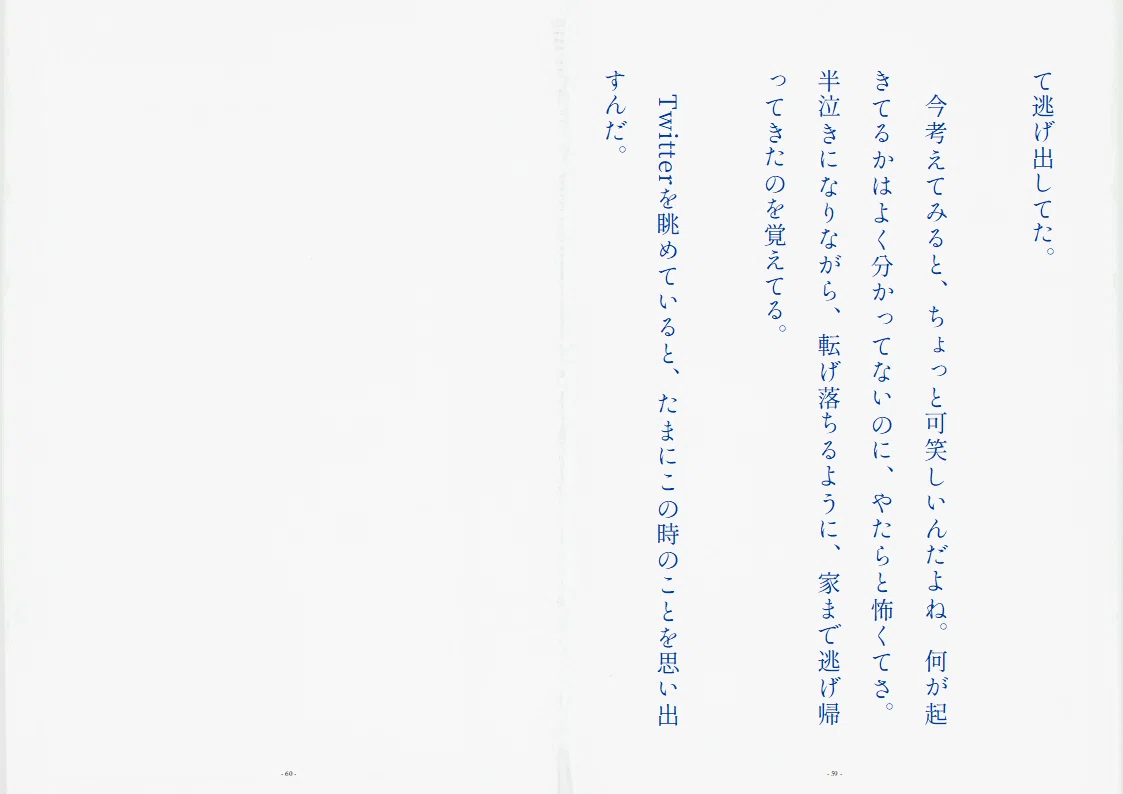 て逃げ出してた。
今考えてみると、ちょっと可笑しいんだよね。何が起
きてるかはよく分かってないのに、やたらと怖くてさ。
半泣きになりながら、転げ落ちるように、家まで逃げ帰
ってきたのを覚えてる。
Twitterを眺めていると、たまにこの時のことを思い出
すんだ。
- 59 -
- 60 -